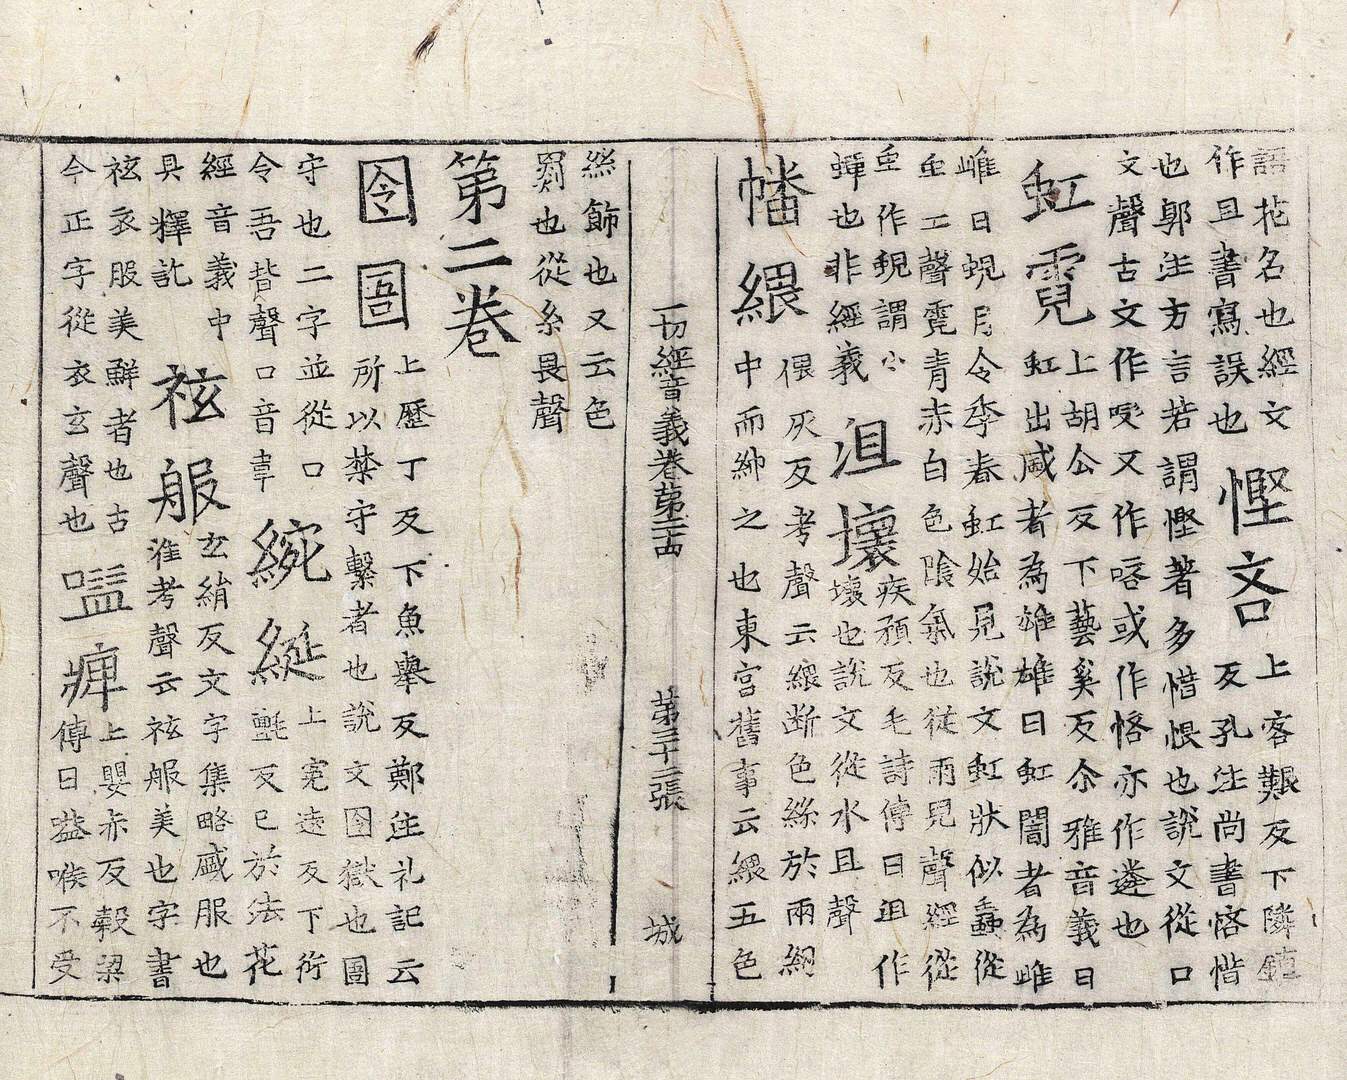 語花名也經文
作且書寫誤也
慳吝
上客艱反下隣鎮
反孔注尚書悋惜
也郭注方言若謂慳著多惜恨也說文從口
文聲古文作㖁又作唘或作悋亦作遴也
虹霓
上胡公反下藝奚反尒雅音義曰
虹出盛者為雄雄曰虹闇者為雌
雌曰蜺月令季春虹始見說文虹狀似蟲從
虫工聲霓青赤白色陰氣也從雨兒聲經從
虫作蜺謂小
蟬也非經義
沮壞
疾預反毛詩傳曰沮作
壞也說文從水且聲
幡縨
偎灰反考聲云縨断色絲於兩綱
中而紳之也東宮舊事云縨五色
一切經音義卷第二十四 第三十二張 城
絲飾也又云色
罽也從糸畏聲
第二卷
囹圄
上歷丁反下魚舉反鄭注礼記云
所以禁守繫者也說文囹獄也圄
守也二字並從口
令吾皆聲口音韋
綩綖
上宛遠反下衍
氈反已於法花
經音義中
具釋訖
袨服
玄絹反文字集略盛服也
淮考聲云袨服美也字書
袨衣服美鮮者也古
今正字從衣玄聲也
嗌痺
上嬰亦反穀梁
傳曰嗌喉不受